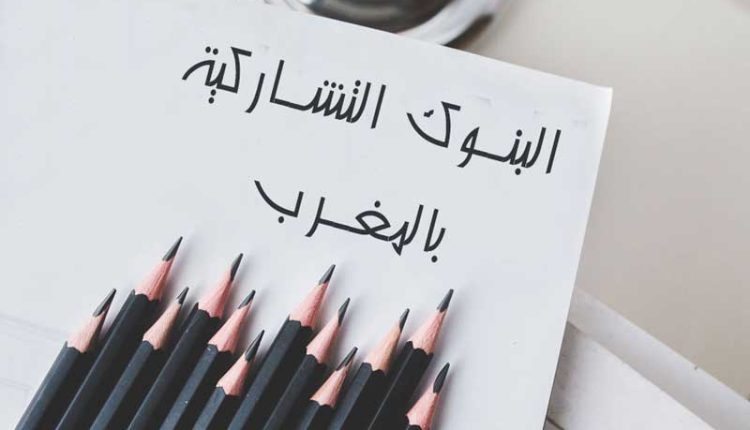 البنوك التشاركية
بالمغرب